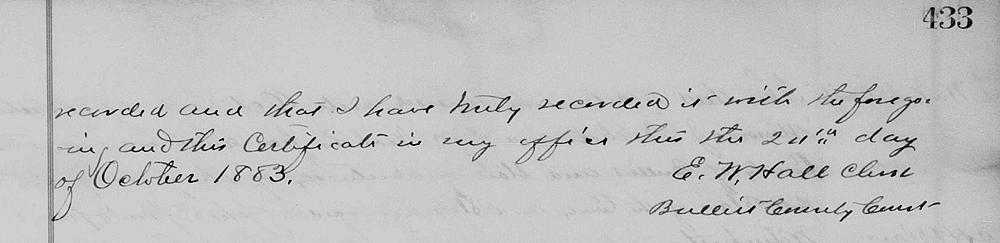 433
recorded and that I have truly recorded it with the forego-
ing and this Certificate in my office this the day
of October 1883.
E. W. Hall Clerk
Bullitt County Court